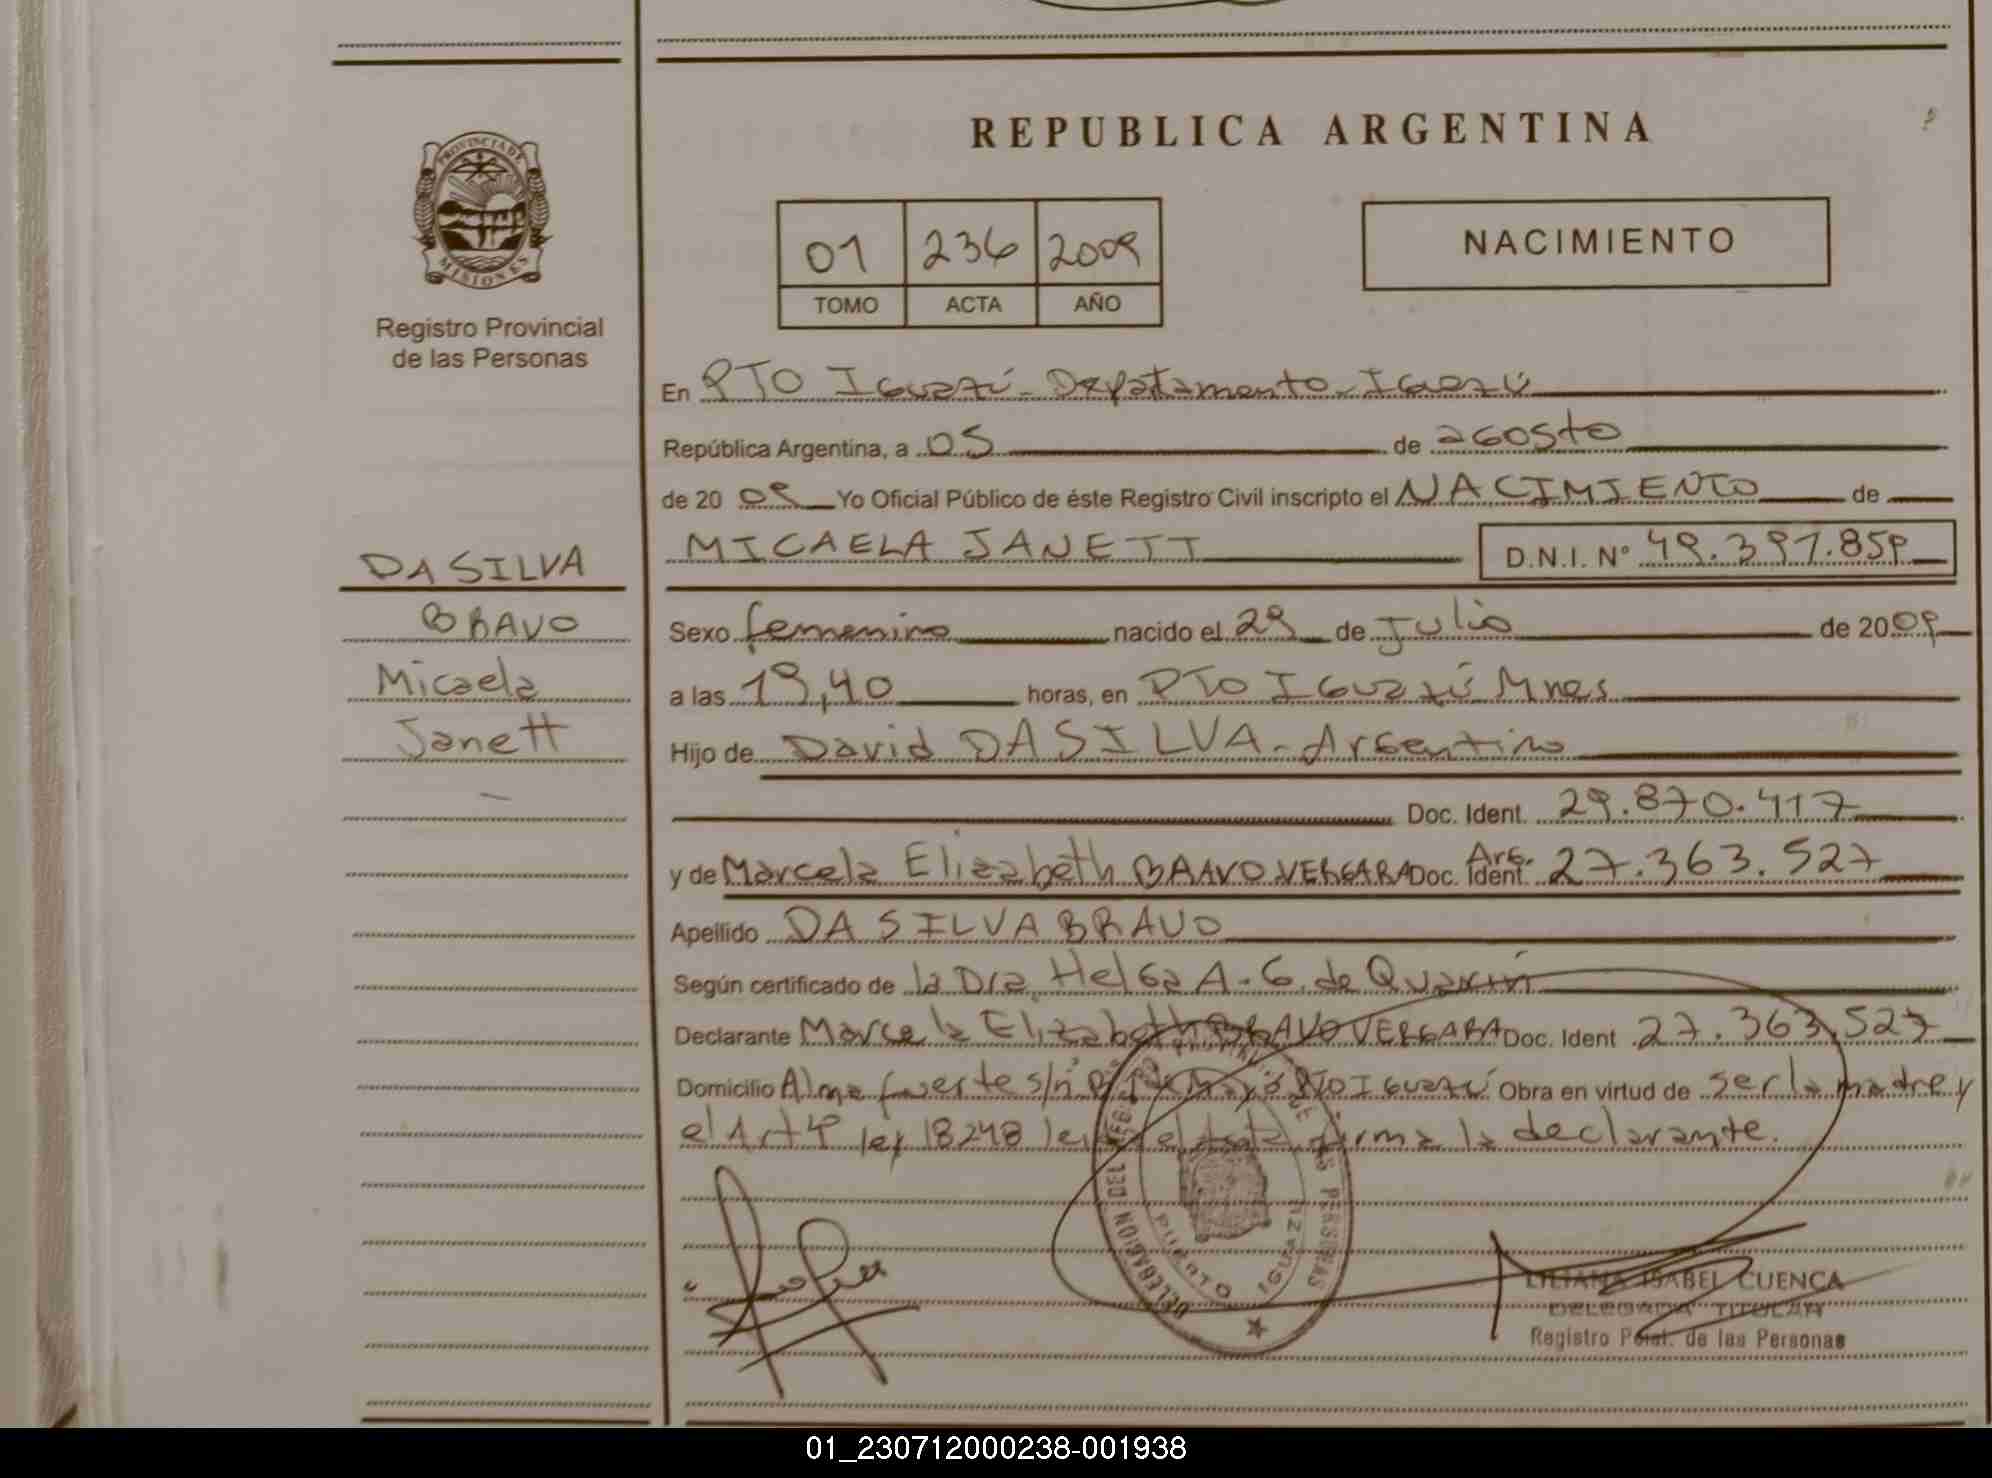 REPUBLICA ARGENTINA
PROVINCIA DE
MISIONES
Registro Provincial
de las Personas
01 236 2009
TOMO ACTA AÑO
NACIMIENTO
En PTO Iguazú - Departamento - Iguazú
República Argentina, a 05 de agosto
de 2009 Yo Oficial Público de éste Registro Civil inscripto el NACIMIENTO de
MICAELA JANETT D.N.I. Nº 49.397.859
DA SILVA
BRAVO
Micaela
Janett
Sexo femenino nacido el 29 de Julio de 2009
a las 19,40 horas, en PTO Iguazú Mnes
Hijo de David DA SILVA - Argentino
Doc. Ident. 29.870.417
y de Marcela Elizabeth BRAVO VERGARA Arg. Doc. Ident. 27.363.527
Apellido DA SILVA BRAVO
Según certificado de la Dra. Helga A. G. de
Declarante Marcela Elizabeth BRAVO VERGARA Doc. Ident 27.363.527
Domicilio Alma fuerte s/nº PTO Iguazú Obra en virtud de ser la madre y
el Art 4º ley 18248 firma la declarante.
DELEGACION DEL REGISTRO PROVINCIAL DE LAS PERSONAS
PUERTO IGUAZU
LILIANA ISABEL CUENCA
DELEGADA TITULAR
Registro Pcial. de las Personas
01_230712000238-001938